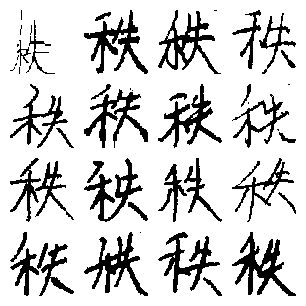 秩秩秩秩
秩秩秩秩
秩秩秩秩
秩秩秩秩